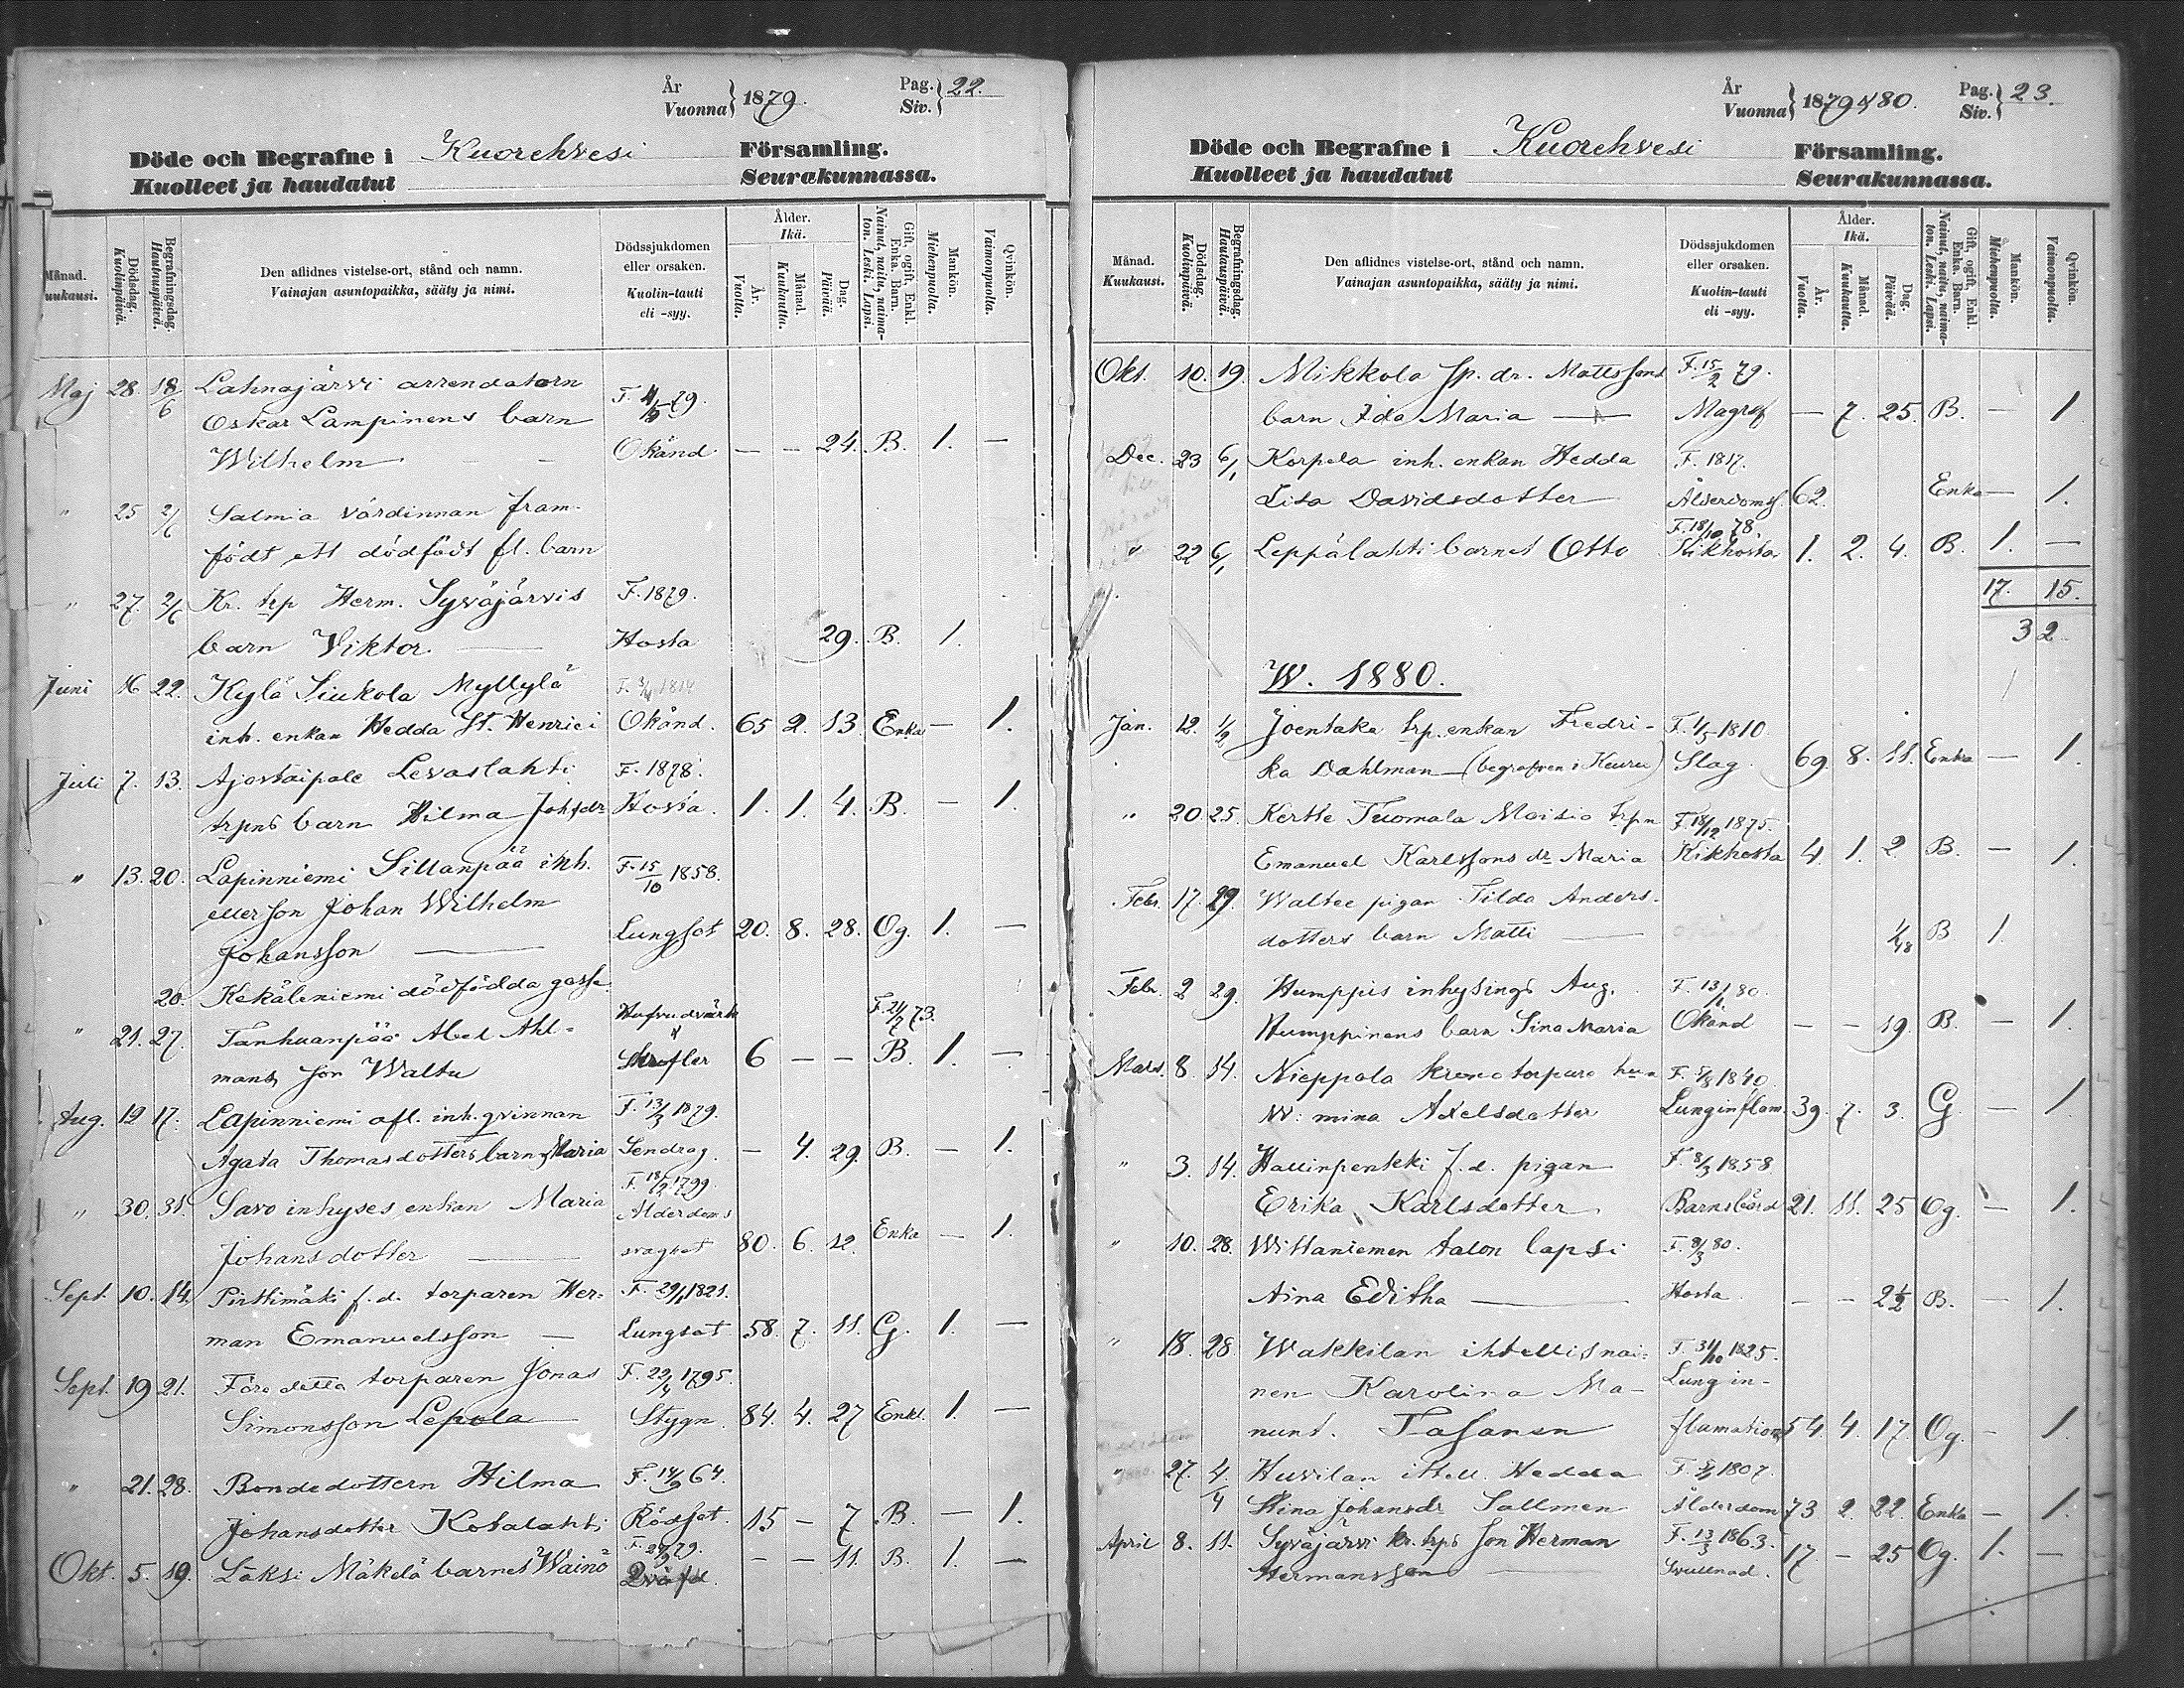 År
Vuonna } 1879.
Pag.
Siv. } 22.
Döde och Begrafne i Kuorehvesi Församling.
Kuolleet ja haudatut Seurakunnassa.
Månad. uukausi.
Dödsdag. Kuolinpäivä.
Begrafningsdag. Hautauspäivä.
Den aflidnes vistelse-ort, stånd och namn.
Vainajan asuntopaikka, sääty ja nimi.
Dödssjukdomen eller orsaken.
Kuolin-tauti eli -syy.
Ålder. Ikä.
År. Vuotta.
Månad. Kuukautta.
Dag. Päivää.
Gift, ogift, Enkl. Enka. Barn.
Nainut, naitu, naimaton. Leski. Lapsi.
Mankön. Miehenpuolta.
Qvinkön. Vaimonpuolta.
Maj 28. 18/6 Lahnajärvi arrendatorn
Oskar Lampinens barn F. 79.
Wilhelm Okänd — — 24. B. 1. —
" 25 2/6 Salmia värdinnan fram-
födt ett dödfödt fl. barn
" 27. 2/6 Kr. trp Herm. Syväjärvis F. 1879.
barn Viktor. — Hosta 29. B. 1.
Juni 16 22. Kylä Siukola Myllylä F. 3/4 1814
inh. enkan Hedda St. Henrici Okänd. 65 2. 13 Enka — 1.
Juli 7. 13. Ajostaipale Levaslahti F. 1878.
trpns barn Hilma Johsdr Hosta. 1. 1. 4. B. — 1.
" 13. 20. Lapinniemi Sillanpää inh. F. 15/10 1858.
eller son Johan Wilhelm
Johansson — Lungsot 20. 8. 28. Og. 1. —
20. Kekäleniemi dödfödda gosse
" 21. 27. Tanhuanpää Abel Ahl- Hufvudvärk F. 21/7 73.
mans son Waltu Skrofler 6 — — B. 1. —
Aug. 12 17. Lapinniemi afl. inh. qvinnan F. 13/3 1879.
Agata Thomasdotters barn Maria Sendrag. — 4. 29. B. — 1.
" 30. 31. Savo inhyses enkan Maria F. 18/2 1799. Ålderdoms
Johansdotter — svaghet 80. 6. 12. Enka — 1.
Sept. 10. 14. Pirttimäki f.d. torparen Her- F. 29/1 1821.
man Emanuelsson — Lungsot 58. 7. 11. G. 1. —
Sept. 19 21. Före detta torparen Jonas F. 22/4 1795.
Simonsson Lepola Stygn 84. 4. 27 Enkl. 1. —
" 21. 28. Bondedottern Hilma F. 14/9 64.
Johansdotter Kotalahti Rödsot. 15 — 7 B. — 1.
Okt. 5. 19. Läksi Mäkelä barnet Wäinö F. 24/9 79. Qväfd. — — 11. B. 1. —
År
Vuonna } 1879 & 80.
Pag.
Siv. } 23.
Döde och Begrafne i Kuorehvesi Församling.
Kuolleet ja haudatut Seurakunnassa.
Månad. Kuukausi.
Dödsdag. Kuolinpäivä.
Begrafningsdag. Hautauspäivä.
Den aflidnes vistelse-ort, stånd och namn.
Vainajan asuntopaikka, sääty ja nimi.
Dödssjukdomen eller orsaken.
Kuolin-tauti eli -syy.
Ålder. Ikä.
År. Vuotta.
Månad. Kuukautta.
Dag. Päivää.
Gift, ogift, Enkl. Enka. Barn.
Nainut, naitu, naimaton. Leski. Lapsi.
Mankön. Miehenpuolta.
Qvinkön. Vaimonpuolta.
Okt. 10. 19. Mikkola sp. dr. Mattssons F. 15/2 79.
barn Ida Maria — Magref — 7. 25. B. — 1
Dec. 23 6/1 Korpela inh. enkan Hedda F. 1817.
Lisa Davidsdotter Ålderdomsf. 62. Enka — 1.
" 22 6/1 Leppälahti barnet Otto F. 18/10 78 Kikhosta 1. 2. 4. B. 1. —
17. 15.
32
W. 1880.
Jan. 12. 1/2 Joentaka trp. enkan Fredri- F. 1/5 1810
ka Dahlman — (begrafven i Keuru) Slag 69. 8. 11. Enka — 1.
" 20 25. Kertte Tuomala Maisio trpn F. 18/12 1875.
Emanuel Karlssons dr Maria Kikhosta 4. 1. 2 B. — 1.
Febr. 17. 29. Waltee pigan Tilda Anders-
dotters barn Matti — 1/48 B 1.
Febr. 2 29. Humppis inhysings Aug. F. 13/1 80.
Humppinens barn Sina Maria Okänd — — 19. B. — 1.
Mars. 8. 14. Nieppola krono torpare hu F. 5/8 1840.
W: mina Axelsdotter Lunginflam. 39. 7. 3. G — 1
" 3. 14. Hallinpentkki f.d. pigan F. 8/3 1858
Erika Karlsdotter Barnsbörd 21. 11. 25 Og. — 1.
" 10. 28. Wittaniemen talon lapsi F. 8/3 80.
Aina Editha — Hosta — — 2½ B. — 1.
" 18. 28. Wakkilan ihtellisnai- F. 31/10 1825.
nen Karolina Ma- Lung in-
nunt. Tasanen flamation 54. 4. 17. Og. — 1.
" 27. 4/4 Huvilan ittell. Hedda F. 1807.
Stina Johansdr Sallmen Ålderdom 73 2. 22. Enka — 1.
April 8. 11. Syväjärvi kr. trps son Herman F. 13/3 1863.
Hermansson — Svullnad. 17 — 25 Og. 1. —